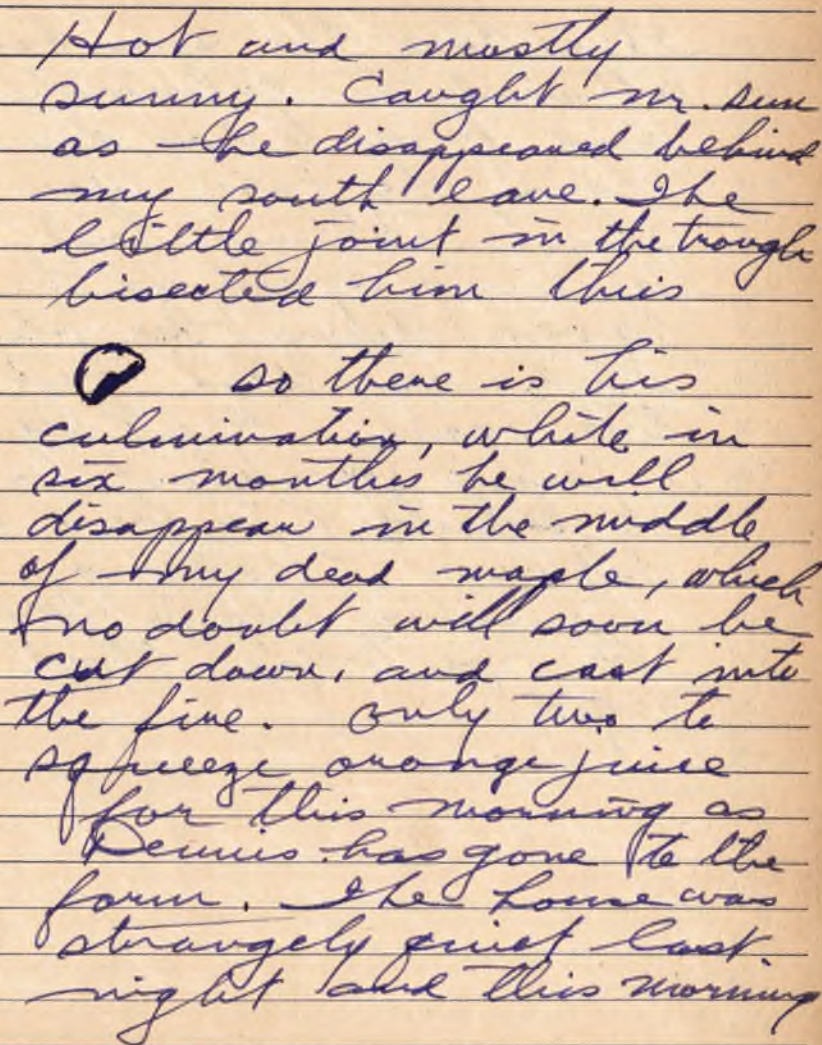 Hot and mostly
sunny. Caught mr. sun
as he disappeared behind
my south eave. The
little joint in the trough
bisected him this
so there is his
culmination, while in
six months he will
disappear in the middle
of my dead maple, which
no doubt will soon be
cut down, and cast into
the fire. Only two to
squeeze orange juice
for this morning as
Dennis has gone to the
farm. The house was
strangely quiet last
night and this morning